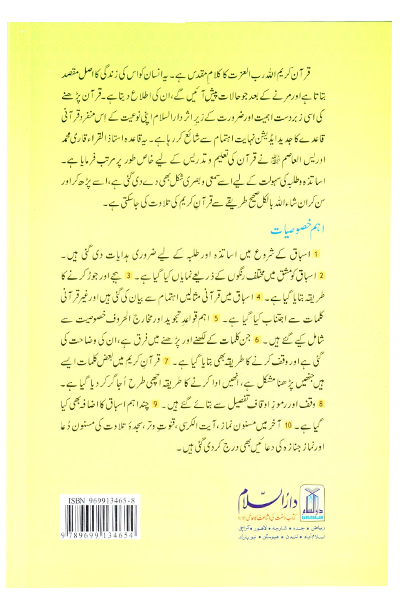 قرآن کریم اللہ رب العزت کا کلام مقدس ہے۔ یہ انسان کو اس کی زندگی کا اصل مقصد
بتاتا ہے اور مرنے کے بعد جو حالات پیش آئیں گے، ان کی اطلاع دیتا ہے۔ قرآن پڑھنے
کی اسی زبردست اہمیت اور ضرورت کے زیر اثر دارالسلام اپنی نوعیت کے اِس منفرد قرآنی
قاعدے کا جدید ایڈیشن نہایت اہتمام سے شائع کر رہا ہے۔ یہ قاعدہ استاذ القراء قاری محمد
ادریس العاصم نے قرآن کی تعلیم و تدریس کے لیے خاص طور پر مرتب فرمایا ہے۔
اساتذہ و طلبہ کی سہولت کے لیے اسے سمعی و بصری شکل بھی دے دی گئی ہے، اسے پڑھ کر اور
سن کر ان شاء اللہ بالکل صحیح طریقے سے قرآن کریم کی تلاوت کی جا سکتی ہے۔
اہم خصوصیات
1 اسباق کے شروع میں اساتذہ اور طلبہ کے لیے ضروری ہدایات دی گئی ہیں۔
2 اسباق کو مشق میں مختلف رنگوں کے ذریعے نمایاں کیا گیا ہے۔ 3 ہجے اور جوڑ کرنے کا
طریقہ بتایا گیا ہے۔ 4 اسباق میں قرآنی مثالیں اہتمام سے بیان کی گئی ہیں اور غیر قرآنی
کلمات سے اجتناب کیا گیا ہے۔ 5 اہم قواعد تجوید اور مخارج الحروف خصوصیت سے
شامل کیے گئے ہیں۔ 6 جن کلمات کے لکھنے اور پڑھنے میں فرق ہے، ان کی وضاحت کی
گئی ہے اور وقف کرنے کا طریقہ بھی بتایا گیا ہے۔ 7 قرآن کریم میں بعض کلمات ایسے
ہیں جنھیں پڑھنا مشکل ہے، انھیں ادا کرنے کا طریقہ اچھی طرح اُجاگر کر دیا گیا ہے۔
8 وقف اور رموز اوقاف تفصیل سے بتائے گئے ہیں۔ 9 چند اہم اسباق کا اضافہ بھی کیا
گیا ہے۔ 10 آخر میں مسنون نماز، آیت الکرسی، قنوت وتر، سجدۂ تلاوت کی مسنون دُعا
اور نماز جنازہ کی دعائیں بھی درج کر دی گئی ہیں۔
ISBN 969913465-8
9 789699 134654
دارالسلام
کتاب و سنت کی اشاعت کا عالمی ادارہ
ریاض • جدہ • شارجہ • لاہور • کراچی
اسلام آباد • لندن • ہیوسٹن • نیو یارک